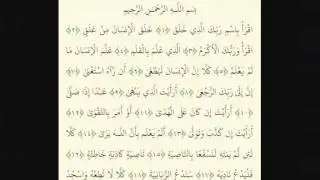 بِسْمِ اللَّهِ الرَّحْمَٰنِ الرَّحِيمِ
اقْرَأْ بِاسْمِ رَبِّكَ الَّذِي خَلَقَ ﴿١﴾ خَلَقَ الْإِنسَانَ مِنْ عَلَقٍ ﴿٢﴾
اقْرَأْ وَرَبُّكَ الْأَكْرَمُ ﴿٣﴾ الَّذِي عَلَّمَ بِالْقَلَمِ ﴿٤﴾ عَلَّمَ الْإِنسَانَ مَا
لَمْ يَعْلَمْ ﴿٥﴾ كَلَّا إِنَّ الْإِنسَانَ لَيَطْغَىٰ ﴿٦﴾ أَن رَّآهُ اسْتَغْنَىٰ ﴿٧﴾
إِنَّ إِلَىٰ رَبِّكَ الرُّجْعَىٰ ﴿٨﴾ أَرَأَيْتَ الَّذِي يَنْهَىٰ ﴿٩﴾ عَبْدًا إِذَا صَلَّىٰ
﴿١٠﴾ أَرَأَيْتَ إِن كَانَ عَلَى الْهُدَىٰ ﴿١١﴾ أَوْ أَمَرَ بِالتَّقْوَىٰ ﴿١٢﴾
أَرَأَيْتَ إِن كَذَّبَ وَتَوَلَّىٰ ﴿١٣﴾ أَلَمْ يَعْلَم بِأَنَّ اللَّهَ يَرَىٰ ﴿١٤﴾ كَلَّا
لَئِن لَّمْ يَنتَهِ لَنَسْفَعًا بِالنَّاصِيَةِ ﴿١٥﴾ نَاصِيَةٍ كَاذِبَةٍ خَاطِئَةٍ ﴿١٦﴾
فَلْيَدْعُ نَادِيَهُ ﴿١٧﴾ سَنَدْعُ الزَّبَانِيَةَ ﴿١٨﴾ كَلَّا لَا تُطِعْهُ وَاسْجُدْ